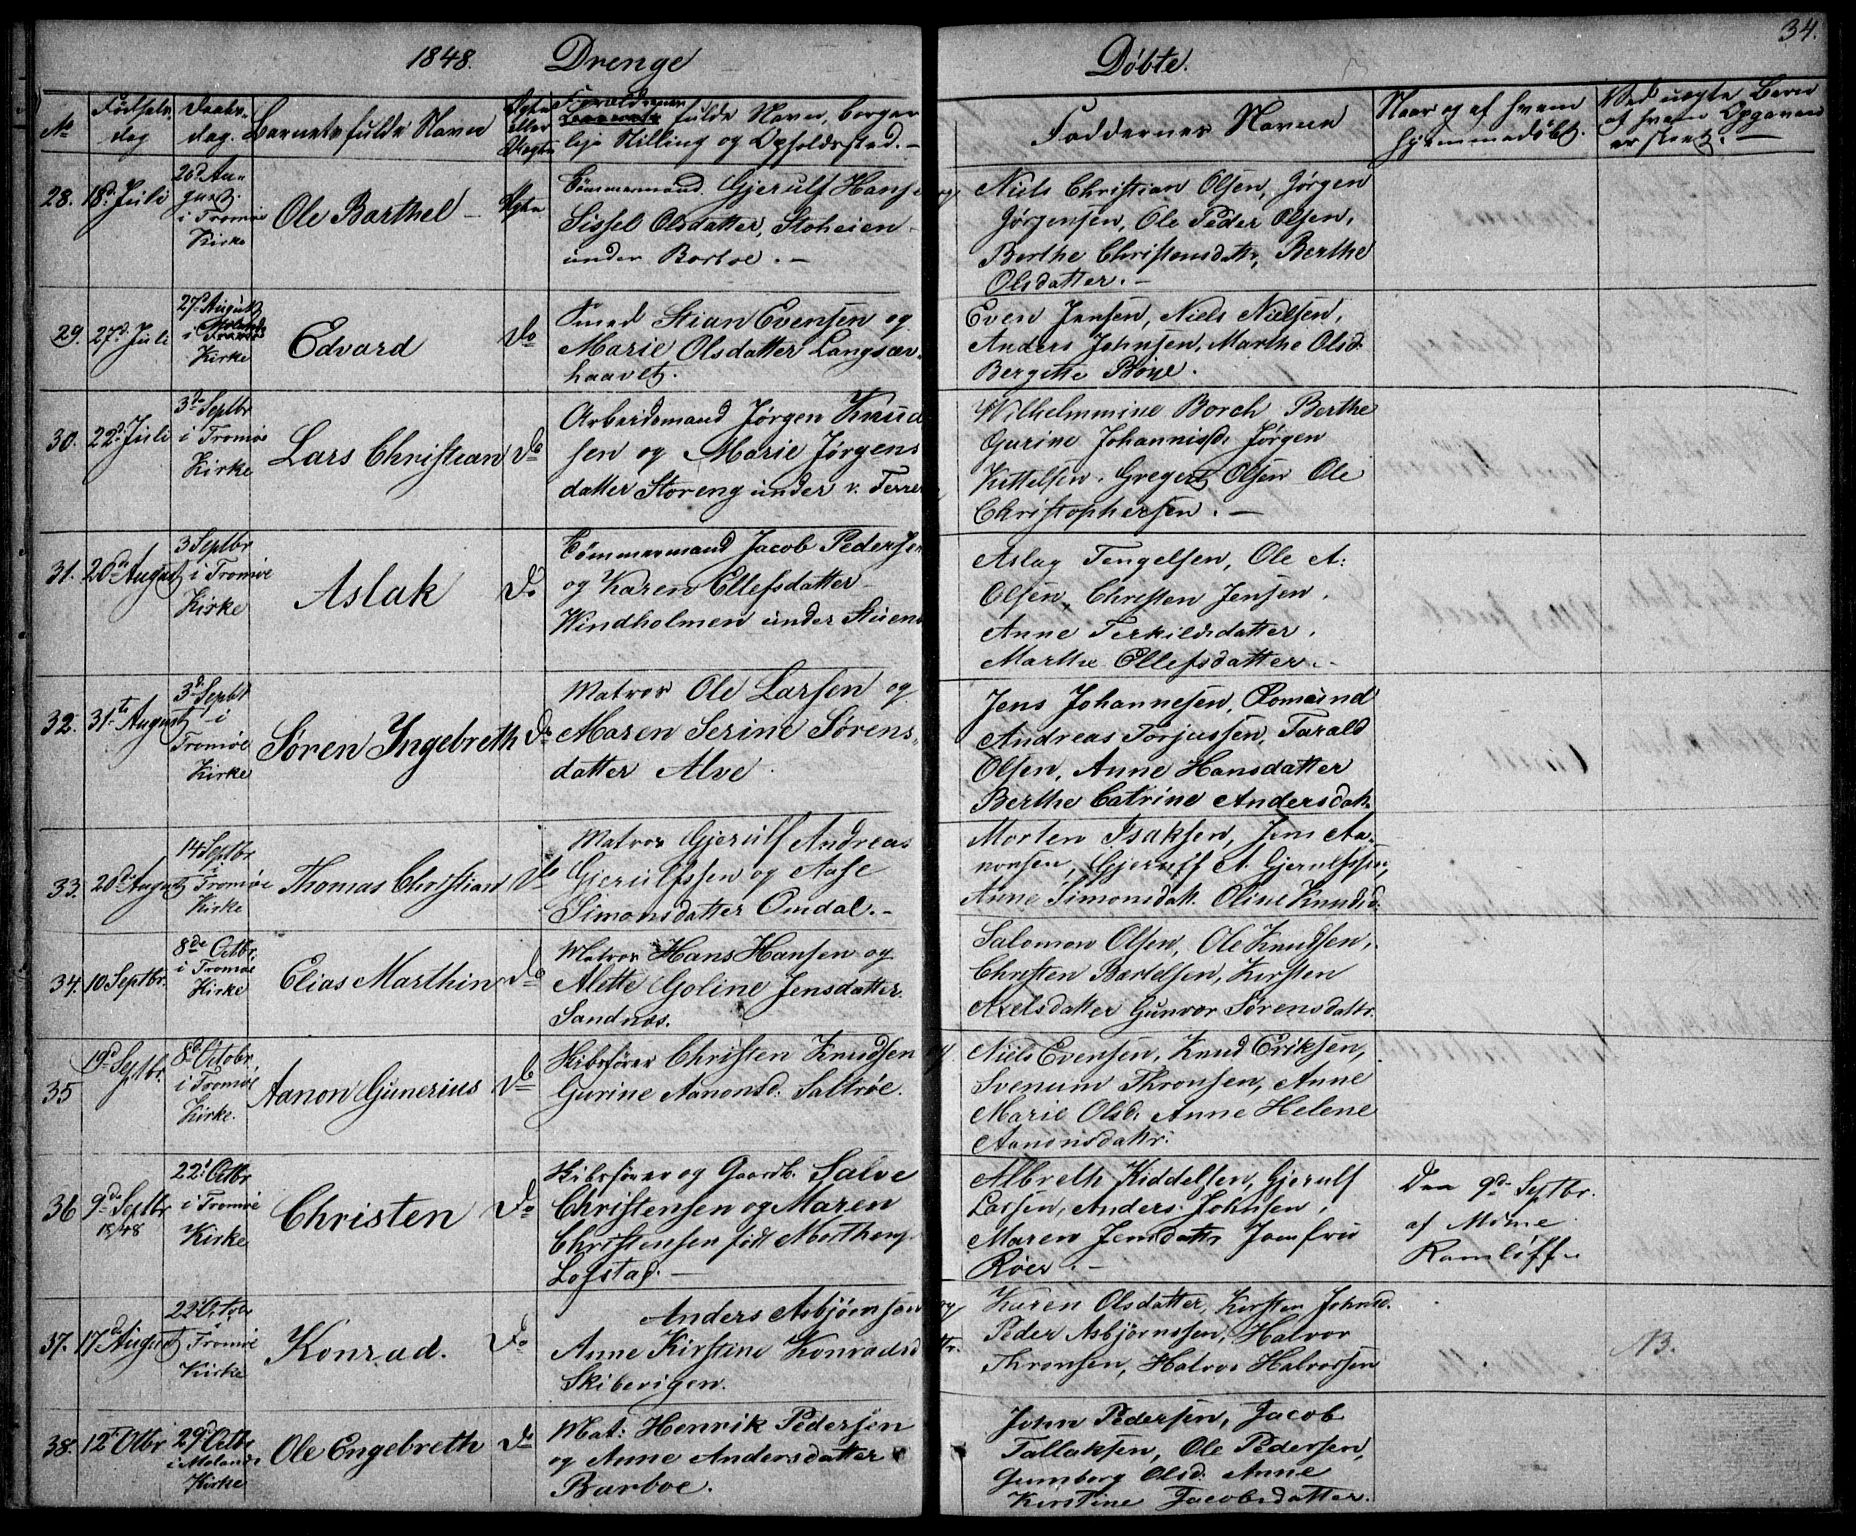 1848. Drenge Døbte. 34.
No Fødsels dag Daabs dag. Barnets fulde Navn Ægte eller Uægte Forældrenes fulde Navn, borger
lige Stilling og Opholdssted.
Faddernes Navne
Naar og af hvem
hjemmedøbt.
Ved uægte Børn
af hvem Opgaven
er skeet.
28. 18d Juli
20d Au-
gust.
i Tromøe
Kirke
Ole Barthel
Ægte
Tømmermand Gjerulf Hansen og
Sissel Olsdatter, Stoheien
under Borboe.
Niels Christian Olsen, Jørgen
Jørgensen, Ole Peder Olsen,
Berthe Christensdatr, Berthe
Olsdatter.
29. 27d Juli
27d August
i
Kirke
Edvard
Do
Smed Stian Evensen og
Marie Olsdatter Langsæv-
haavet.
Even Jensen, Niels Nielsen,
Anders Johnsen, Marthe Olsd.
Bergitte Bøye.
30. 22d Juli
3de Septbr
i Tromøe
Kirke
Lars Christian
Do
Arbeidsmand Jørgen Knud
sen og Marie Jørgens
datter Storeng under v.
Wilhelmmine Borch, Berthe
Gurine Johannisd. Jørgen
Kittelsen. Gregert Olsen Ole
Christophersen.
31. 20de August
3 Septbr
i Tromøe
Kirke
Aslak
Do
Tømmermand Jacob Pedersen
og Karen Ellefsdatter
Windholmen under
Aslag Tengelsen, Ole A:
Olsen, Christen Jensen,
Anne Terkildsdatter,
Marthe Ellefsdatter.
32. 31te August
3d Septbr
i
Tromøe
Kirke
Søren Ingebreth
Do
Matros Ole Larsen og
Maren Serine Sørens-
datter Alve.
Jens Johannesen, Romund
Andreas Torjussen, Tarald
Olsen, Anne Hansdatter
Berthe Catrine Andersdatr.
33. 20de August
14 Septbr
i Tromøe
Kirke
Thomas Christian
Do
Matros Gjerulf Andreas
Gjerulfssen og Aase
Simonsdatter Omdal.
Morten Isaksen, Jens Aa-
nonsen, Gjerulf A. Gjerulfssen,
Anne Simonsdatr. Oline Knudsd.
34. 10 Septbr.
8de Octbr,
i Tromøe
Kirke
Elias Marthin
Do
Matros Hans Hansen og
Alette Goline Jensdatter.
Sandnæs.
Salomon Olsen, Ole Knudsen,
Christen Bartelsen, Kirsten
Axelsdatter Gunvor Sørensdatr.
35
19d Septbr.
8d Octobr,
i Tromøe
Kirke.
Aanon Gunerius.
Do
Skibsfører Christen Knudsen og
Gurine Aanonsd. Saltrøe.
Niels Evensen, Knud Eriksen,
Svenum Thronsen, Anne
Marie Olsd. Anne Helene
Aanonsdatr.
36 9de Septbr.
1848
22d Octbr
i Tromøe
Kirke
Christen
Do
Skibsfører og Gaardb. Salve
Christensen og Maren
Christensen født
Lofstad.
Albreth Kiddelsen, Gjerulf
Larsen, Anders Johnsen,
Maren Jensdatr, Jomfru
Røer.
Den 9d Septbr.
af
37. 17de August
22d Octobr
i Tromøe
Kirke
Konrad.
Do
Anders Asbjørnsen og
Anne Kirstine Konradsdtr.
Skibevigen.
Karen Olsdatter, Kirsten Johnsd.
Peder Asbjørnssen, Halvor
Thronsen, Halvor Halvorsen
NB.
38. 12te Otbr
29d Octbr
i Molands
Kirke
Ole Engebreth
Do
Mat: Henrik Pedersen
og Anne Andersdatter
Barboe.
John Pedersen, Jacob
Tallaksen, Ole Pedersen,
Gumborg Olsd. Anne
Kirstine Jacobsdatter.